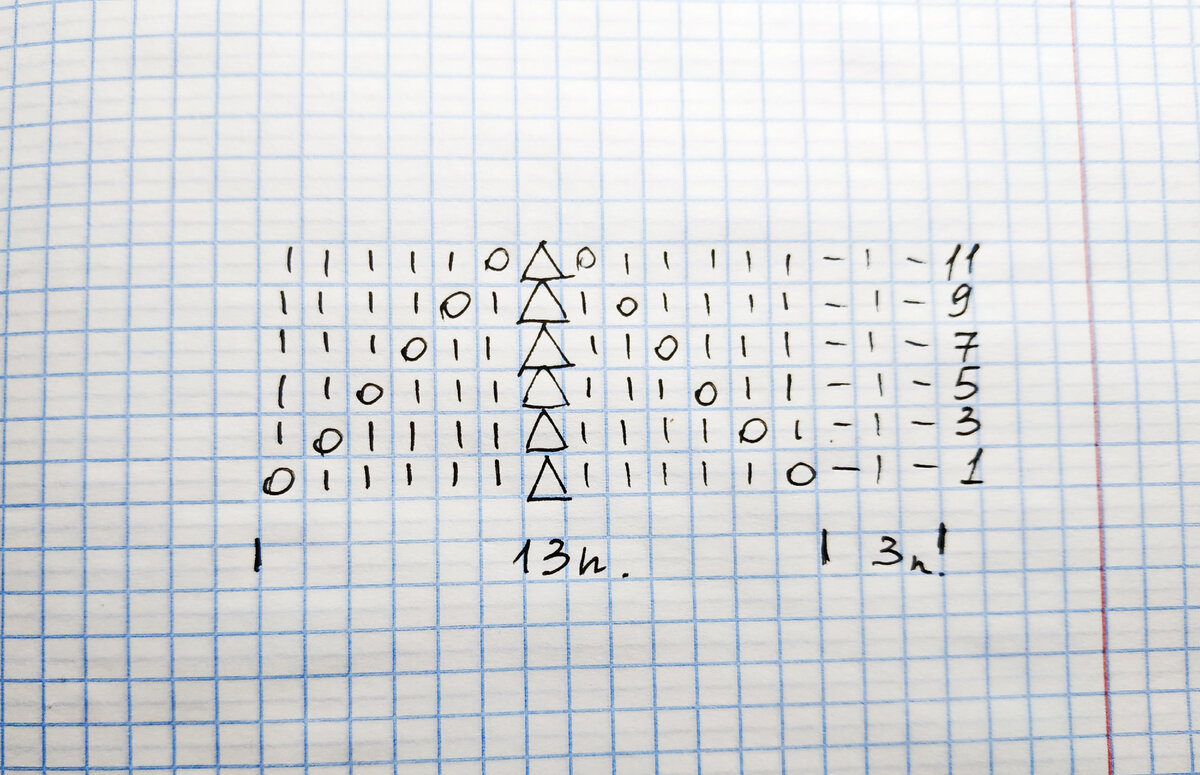 | | | | | O △ O | | | | | – | – 11
| | | | O | △ | O | | | | – | – 9
| | | O | | △ | | O | | | – | – 7
| | O | | | △ | | | O | | – | – 5
| O | | | | △ | | | | O | – | – 3
O | | | | | △ | | | | | O – | – 1
| 13п. | 3п. |